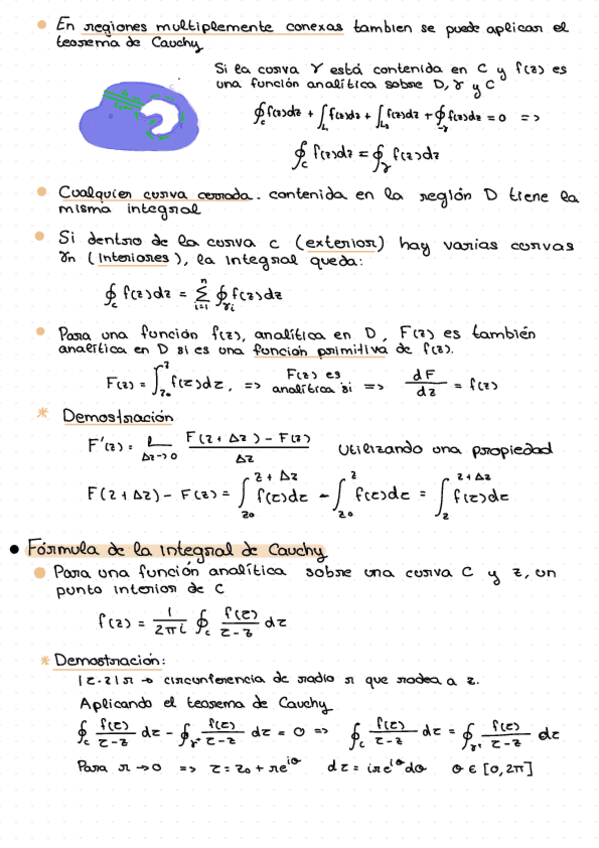 En regiones multiplemente conexas tambien se puede aplicar el
teorema de Cauchy
Si la curva γ está contenida en C y f(z) es
una función analítica sobre D, γ y C
∮_c f(z)dz + ∫_L₁ f(z)dz + ∫_L₂ f(z)dz + ∮_-γ f(z)dz = 0 =>
∮_c f(z)dz = ∮_γ f(z)dz
Cualquier curva cerrada. contenida en la región D tiene la
misma integral
Si dentro de la curva c (exterior) hay varias curvas
γn (Interiores), la integral queda:
∮_c f(z)dz = Σ_{i=1}^{n} ∮_γi f(z)dz
Para una función f(z), analítica en D, F(z) es también
analítica en D si es una función primitiva de f(z).
F(z) = ∫_{z0}^{z} f(τ)dτ, => F(z) es analítica si => dF/dz = f(z)
* Demostración
F'(z) = L_{Δz→0} F(z+Δz) - F(z) / Δz Utilizando una propiedad
F(z+Δz) - F(z) = ∫_{z0}^{z+Δz} f(τ)dτ - ∫_{z0}^{z} f(τ)dτ = ∫_{z}^{z+Δz} f(τ)dτ
• Fórmula de la Integral de Cauchy
Para una función analítica sobre una curva C y z, un
punto interior de C
f(z) = 1/2πi ∮_c f(τ)/τ-z dτ
* Demostración:
|τ-z|r → circunferencia de radio r que rodea a z.
Aplicando el teorema de Cauchy
∮_c f(τ)/τ-z dτ - ∮_γr f(τ)/τ-z dτ = 0 => ∮_c f(τ)/τ-z dτ = ∮_γr f(τ)/τ-z dτ
Para r→0 => τ = z0 + re^{iθ} dτ = ire^{iθ}dθ θ ∈ [0,2π]